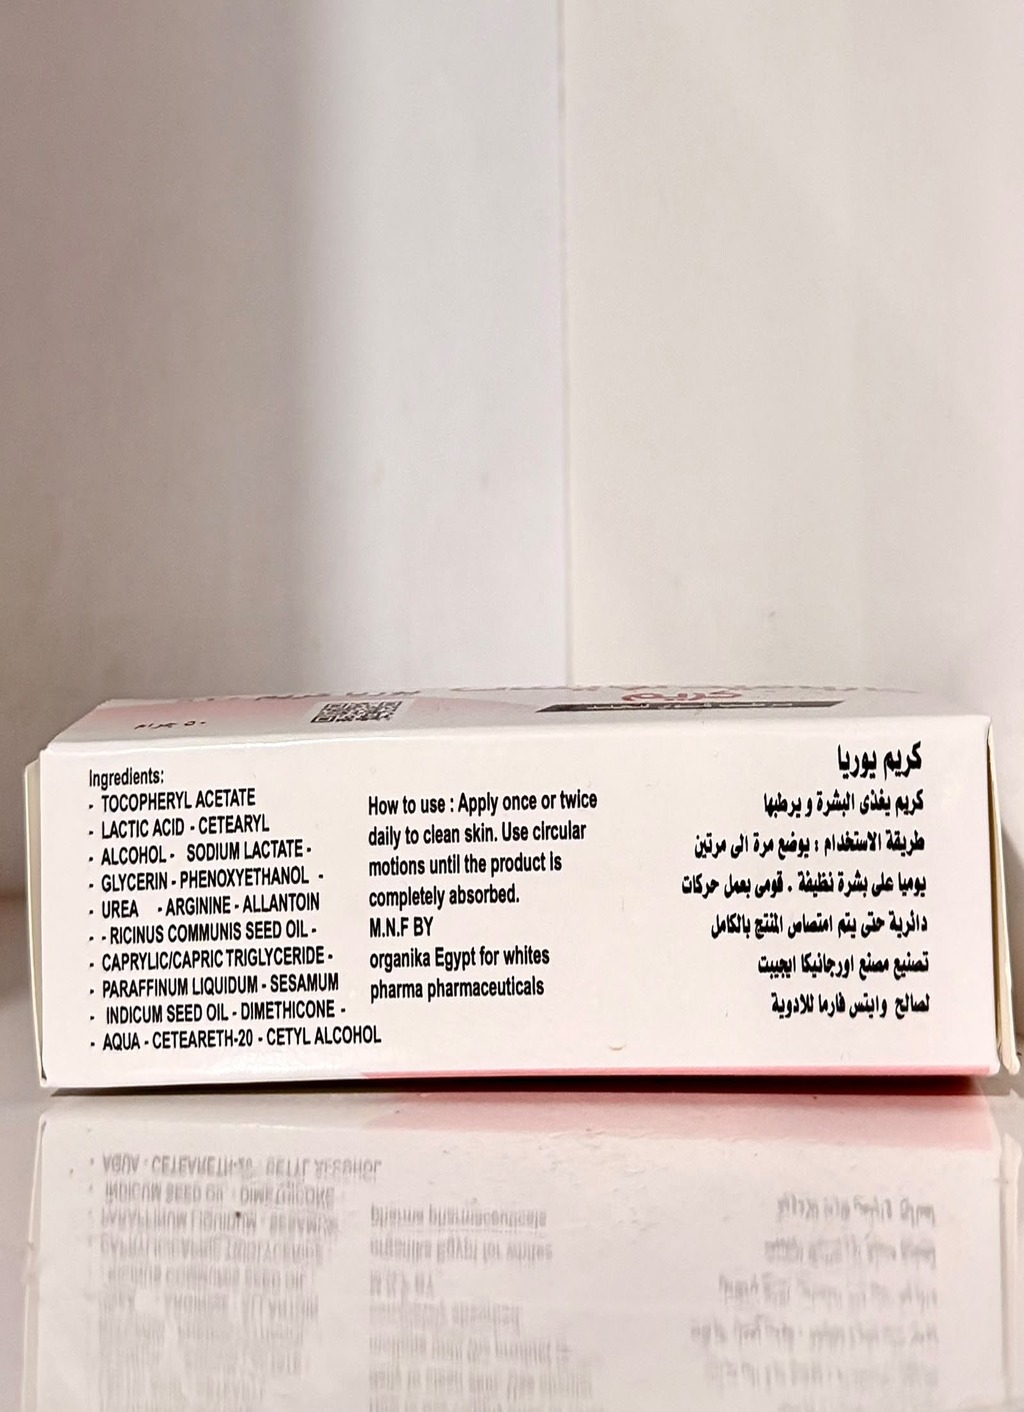 كريم
٥٠ جرام
Ingredients:
- TOCOPHERYL ACETATE
- LACTIC ACID - CETEARYL
- ALCOHOL - SODIUM LACTATE -
- GLYCERIN - PHENOXYETHANOL -
- UREA - ARGININE - ALLANTOIN
- - RICINUS COMMUNIS SEED OIL -
- CAPRYLIC/CAPRIC TRIGLYCERIDE -
- PARAFFINUM LIQUIDUM - SESAMUM
- INDICUM SEED OIL - DIMETHICONE -
- AQUA - CETEARETH-20 - CETYL ALCOHOL
How to use : Apply once or twice
daily to clean skin. Use circular
motions until the product is
completely absorbed.
M.N.F BY
organika Egypt for whites
pharma pharmaceuticals
كريم يوريا
كريم يغذى البشرة و يرطبها
طريقة الاستخدام : يوضع مرة الى مرتين
يوميا على بشرة نظيفة . قومى بعمل حركات
دائرية حتى يتم امتصاص المنتج بالكامل
تصنيع مصنع اورجانيكا ايجيبت
لصالح وايتس فارما للادوية